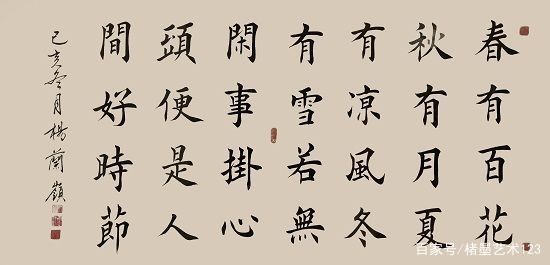 春有百花
秋有月夏
有凉風冬
有雪若無
閑事掛心
頭便是人
間好時節
己亥冬月楊蘭嶺
百家号/楮墨艺术123